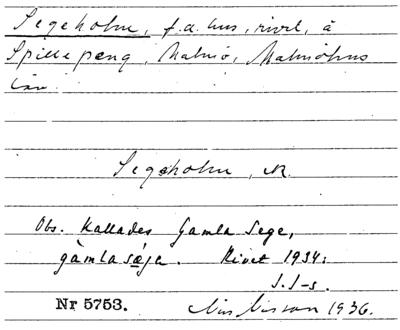 Segeholm, f.d. hus, rivet, å
Spillepeng, Malmö, Malmöhus
län.
Segeholm, M.
Obs. Kallades Gamla Sege,
gàmla sǽge. Rivet 1934:
S.I-s.
Nr 5753. Nils Nilsson 1936.